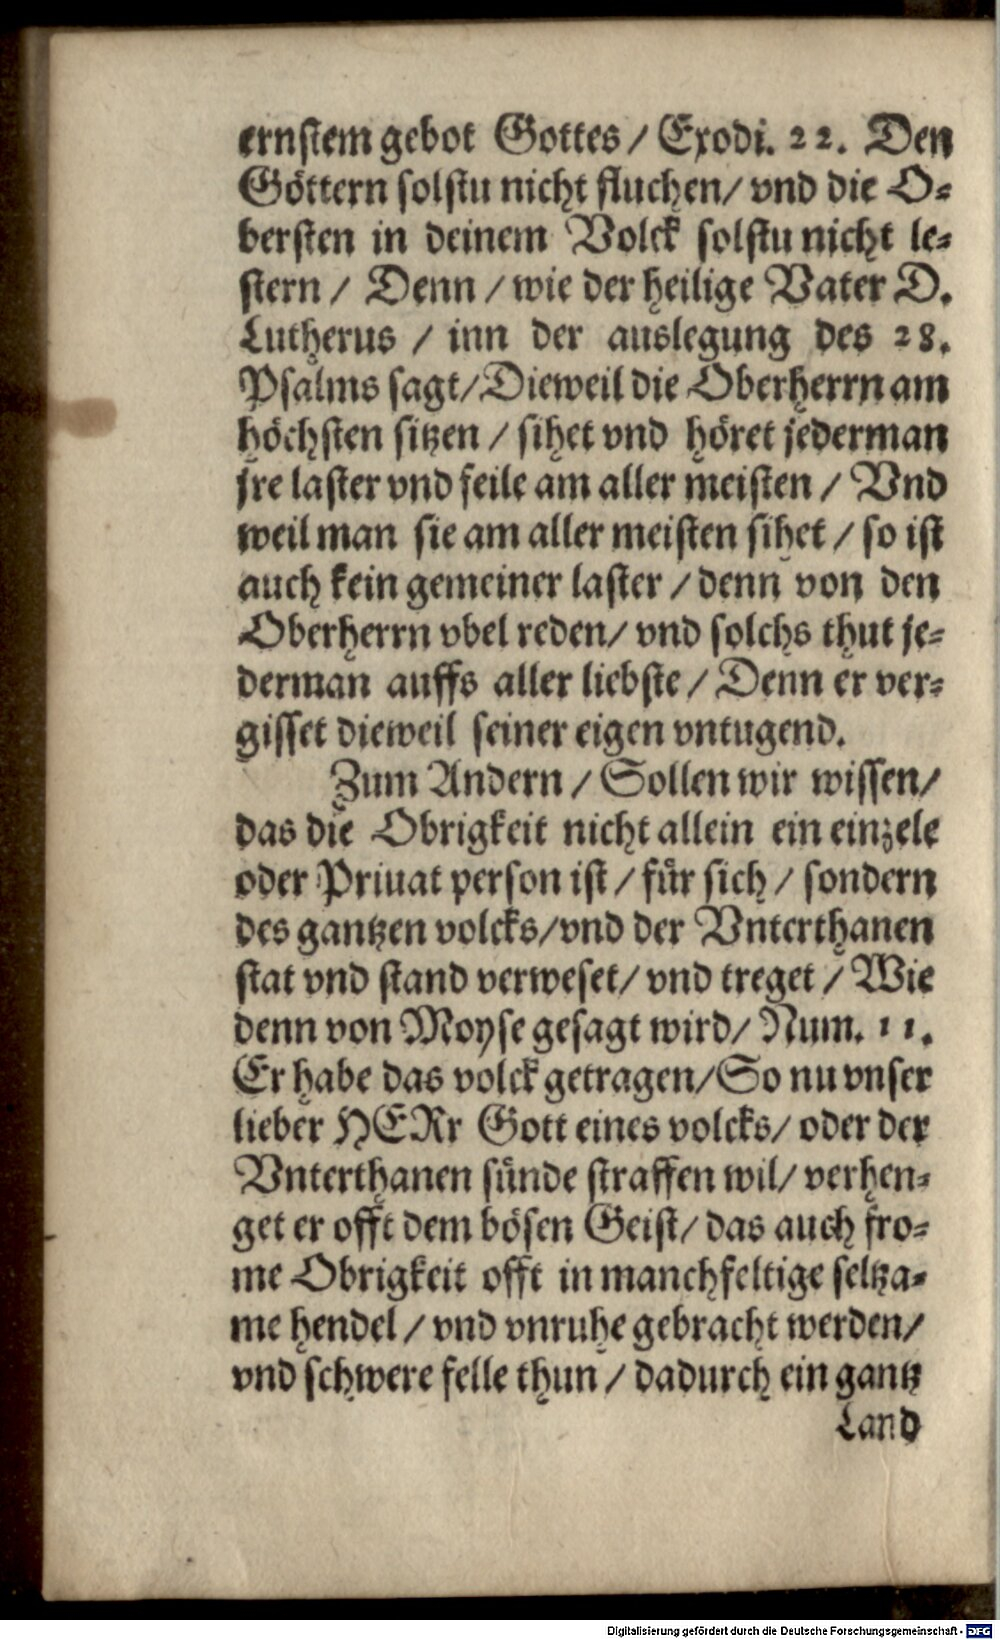 ernstem gebot Gottes / Exodi. 22. Den
Göttern solstu nicht fluchen / vnd die O-
bersten in deinem Volck solstu nicht le-
stern / Denn / wie der heilige Vater D.
Lutherus / inn der auslegung des 28.
Psalms sagt / Dieweil die Oberherrn am
höchsten sitzen / sihet vnd höret jederman
jre laster vnd feile am aller meisten / Vnd
weil man sie am aller meisten sihet / so ist
auch kein gemeiner laster / denn von den
Oberherrn vbel reden / vnd solchs thut je-
derman auffs aller liebste / Denn er ver-
gisset dieweil seiner eigen vntugend.
Zum Andern / Sollen wir wissen /
das die Obrigkeit nicht allein ein einzele
oder Priuat person ist / für sich / sondern
des gantzen volcks / vnd der Vnterthanen
stat vnd stand verweset / vnd treget / Wie
denn von Moyse gesagt wird / Num. 11.
Er habe das volck getragen / So nu vnser
lieber HERr Gott eines volcks / oder der
Vnterthanen sünde straffen wil / verhen-
get er offt dem bösen Geist / das auch fro-
me Obrigkeit offt in manchfeltige seltza-
me hendel / vnd vnruhe gebracht werden /
vnd schwere felle thun / dadurch ein gantz
Land
Digitalisierung gefördert durch die Deutsche Forschungsgemeinschaft - DFG